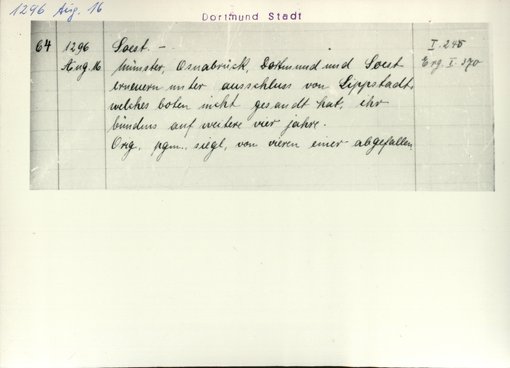 1296 Aug. 16
Dortmund Stadt
64 1296 Soest. – I. 245
Aug. 16 Münster, Osnabrück, Dortmund und Soest Erg. I. 370
erneuern unter ausschluss von Lippstadt,
welches boten nicht gesandt hat, ihr
bündnis auf weitere vier jahre.
Orig., pgm., siegl, von vieren einer abgefallen.